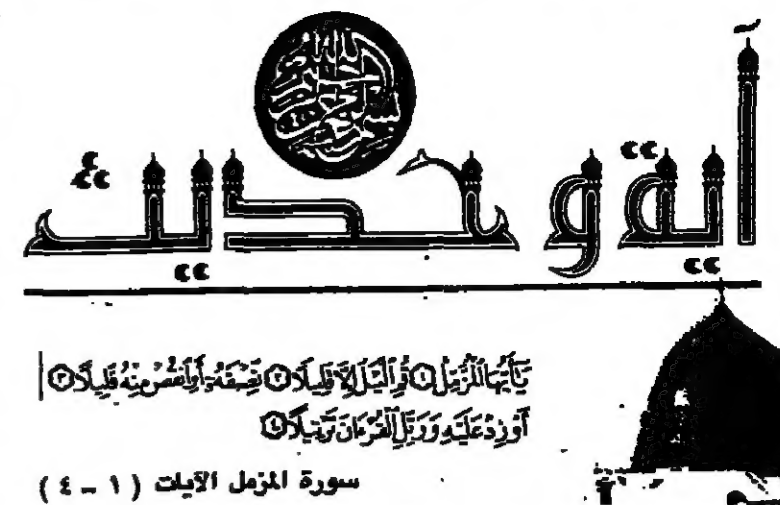 بسم الله الرحمن الرحيم
آية وحديث
يَٰٓأَيُّهَا ٱلْمُزَّمِّلُ ۝١ قُمِ ٱلَّيْلَ إِلَّا قَلِيلًا ۝٢ نِّصْفَهُۥٓ أَوِ ٱنقُصْ مِنْهُ قَلِيلًا ۝٣
أَوْ زِدْ عَلَيْهِ وَرَتِّلِ ٱلْقُرْءَانَ تَرْتِيلًا ۝٤
سورة المزمل الآيات ( ١ - ٤ )